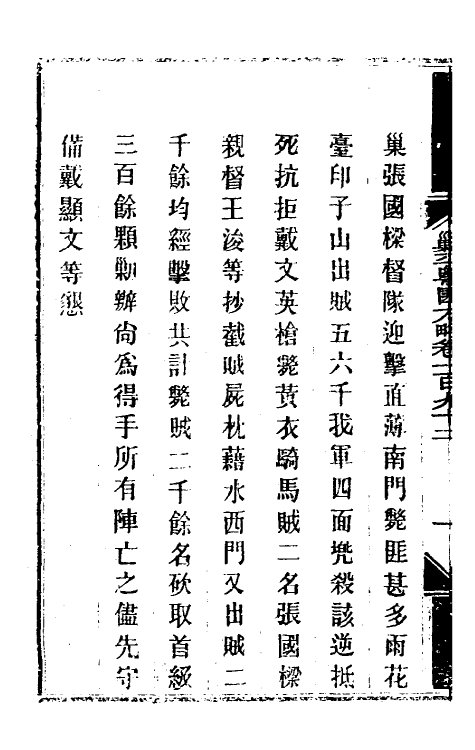 巢張國樑督隊迎擊直薄南門斃匪甚多雨花
臺印子山出賊五六千我軍四面兠殺該逆抵
死抗拒戴文英槍斃黃衣騎馬賊二名張國樑
親督王浚等抄截賊屍枕藉水西門又出賊二
千餘均經擊敗共計斃賊二千餘名砍取首級
三百餘顆勦辦尙爲得手所有陣亡之儘先守
備戴顯文等懇